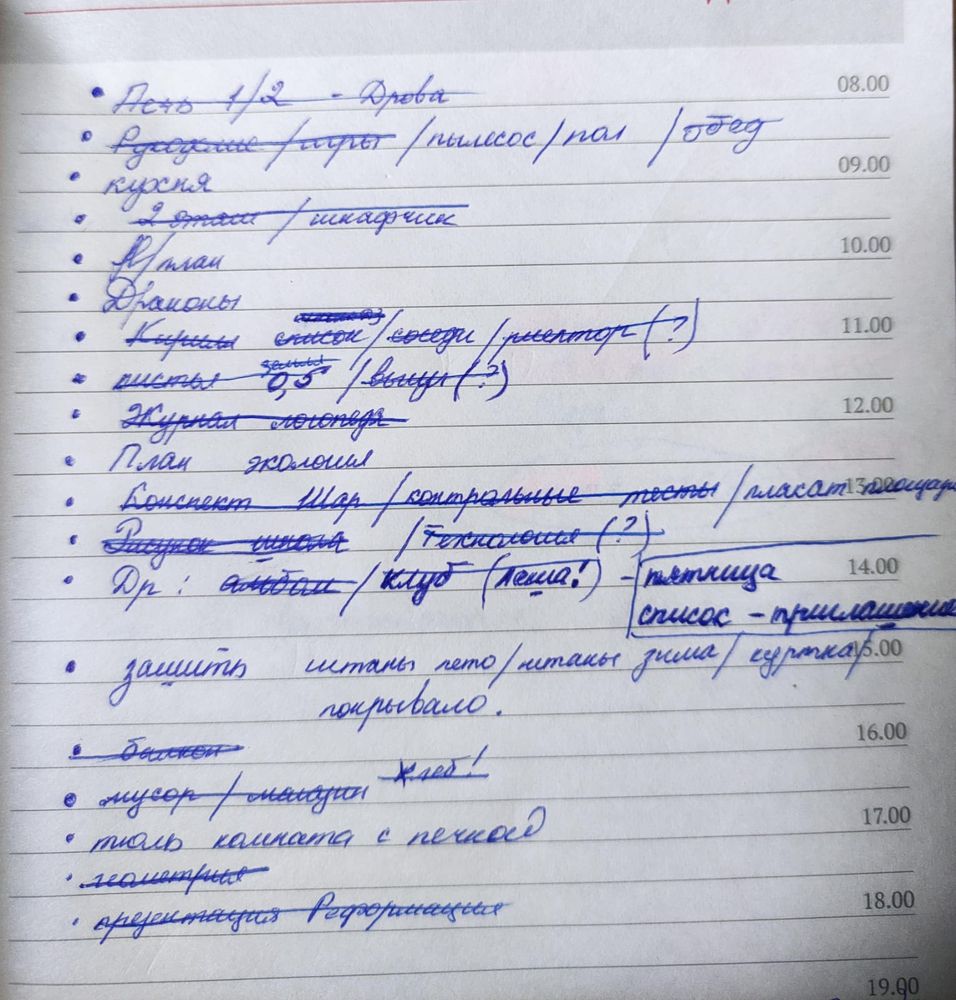 • Печь 1/2 - Дрова 08.00
• Рукоделие / игры / пылесос / пол / обед
• кухня 09.00
• 2 этаж / шкафчик
• План 10.00
• Драконы
• Кирилл список / соседи / риелтор (?) 11.00
• кистья 0,5 / (?)
• Журнал логопеда 12.00
• План экология
• Конспект Шар / контрольные тесты / плакат площади 13.00
• Рисунок школа / Технология (?)
• Др: альбом / клуб (Леша!) - пятница 14.00
список - приглашение
• зашить штаны лето / штаны зима / куртка / 15.00
покрывало.
• балкон 16.00
• мусор / магазин хлеб!
• тюль комната с печкой 17.00
• геометрия
• презентация Реформация 18.00
19.00